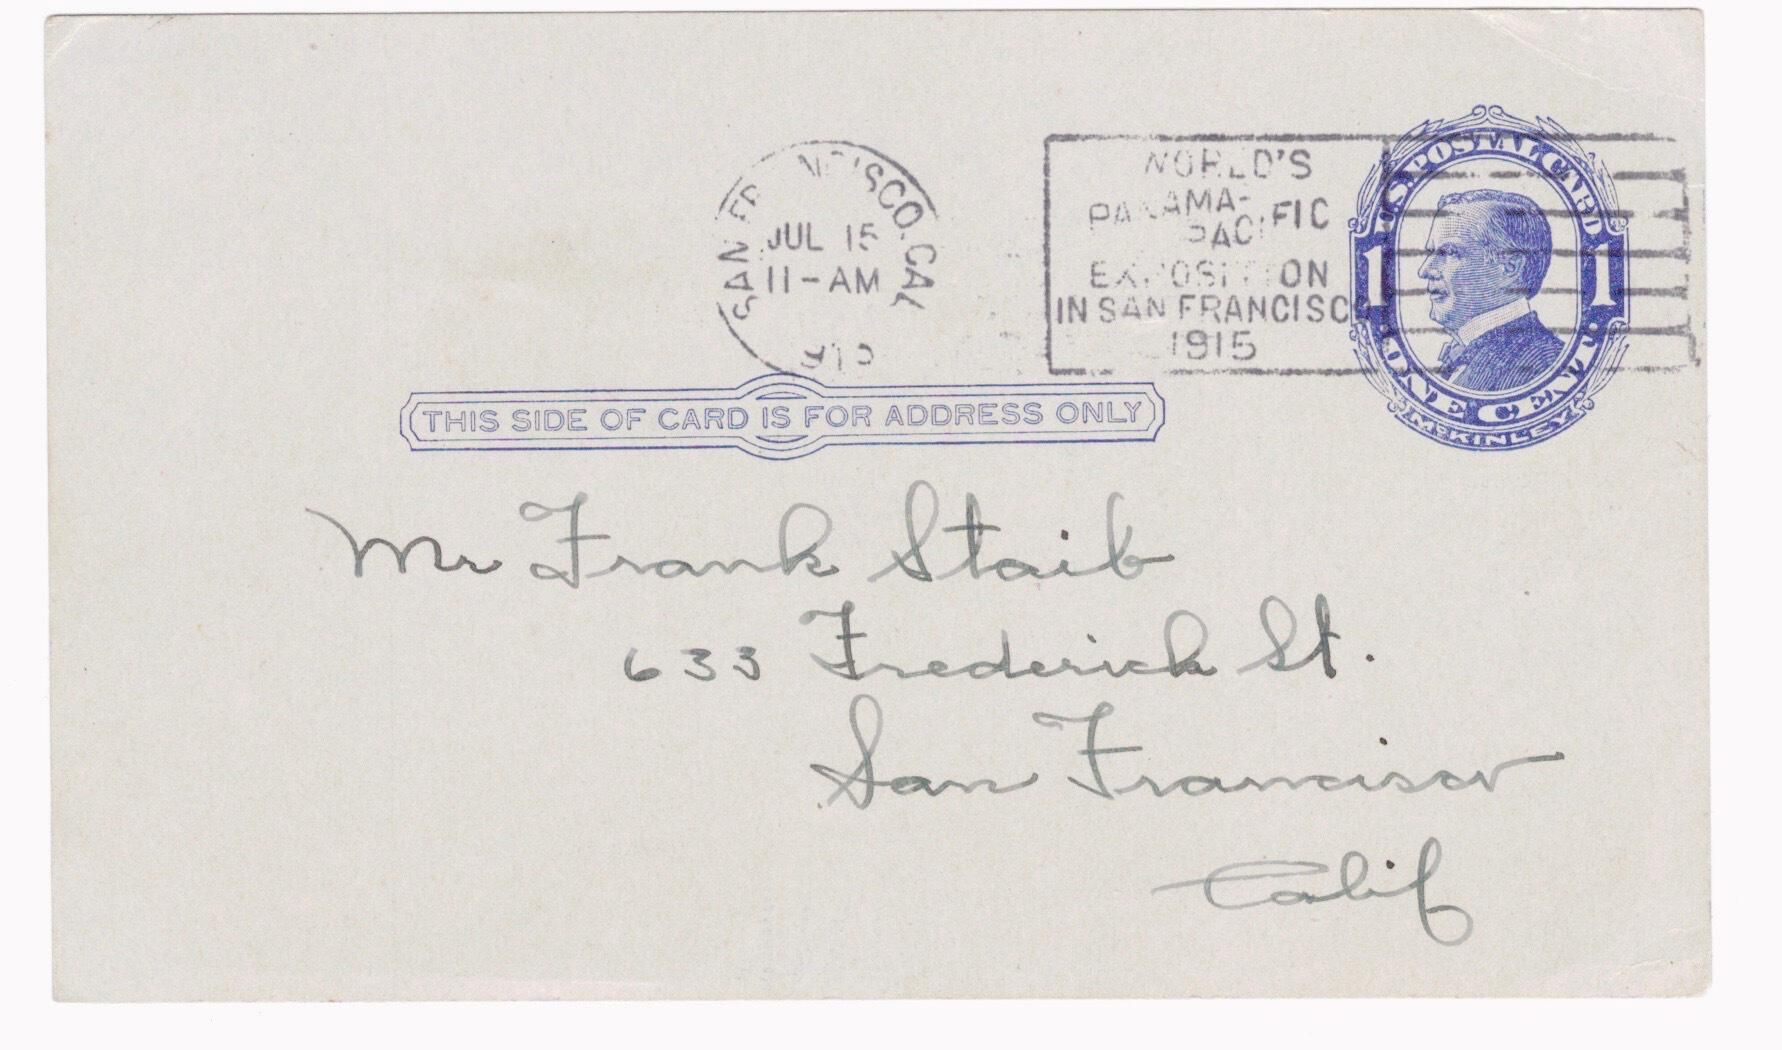 SAN FRANCISCO, CAL
JUL 15
11-AM
WORLD'S
PANAMA-
PACIFIC
EXPOSITION
IN SAN FRANCISCO
1915
U.S. POSTAL CARD
1 1
ONE CENT
McKINLEY
THIS SIDE OF CARD IS FOR ADDRESS ONLY
Mr Frank Staib
633 Frederick St.
San Francisco
Calif